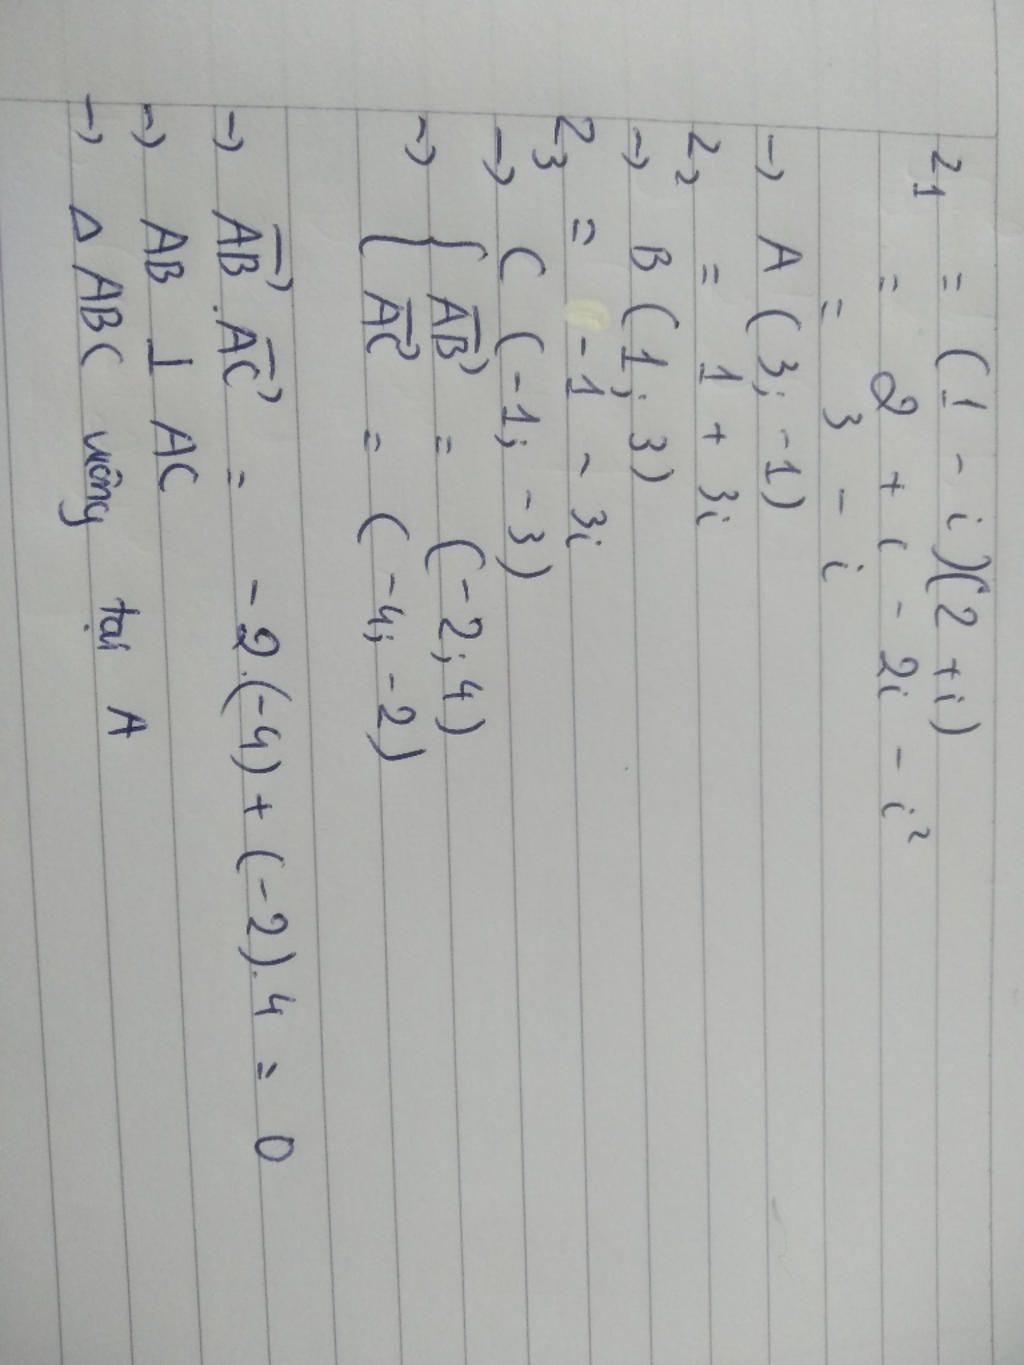 z₁ = (1 - i)(2 + i)
= 2 + i - 2i - i²
= 3 - i
→ A (3; -1)
z₂ = 1 + 3i
→ B (1; 3)
z₃ = -1 - 3i
→ C (-1; -3)
→ { AB→ = (-2; 4)
{ AC→ = (-4; -2)
→ AB→ . AC→ = -2.(-4) + (-2).4 = 0
→ AB ⊥ AC
→ Δ ABC vuông tại A